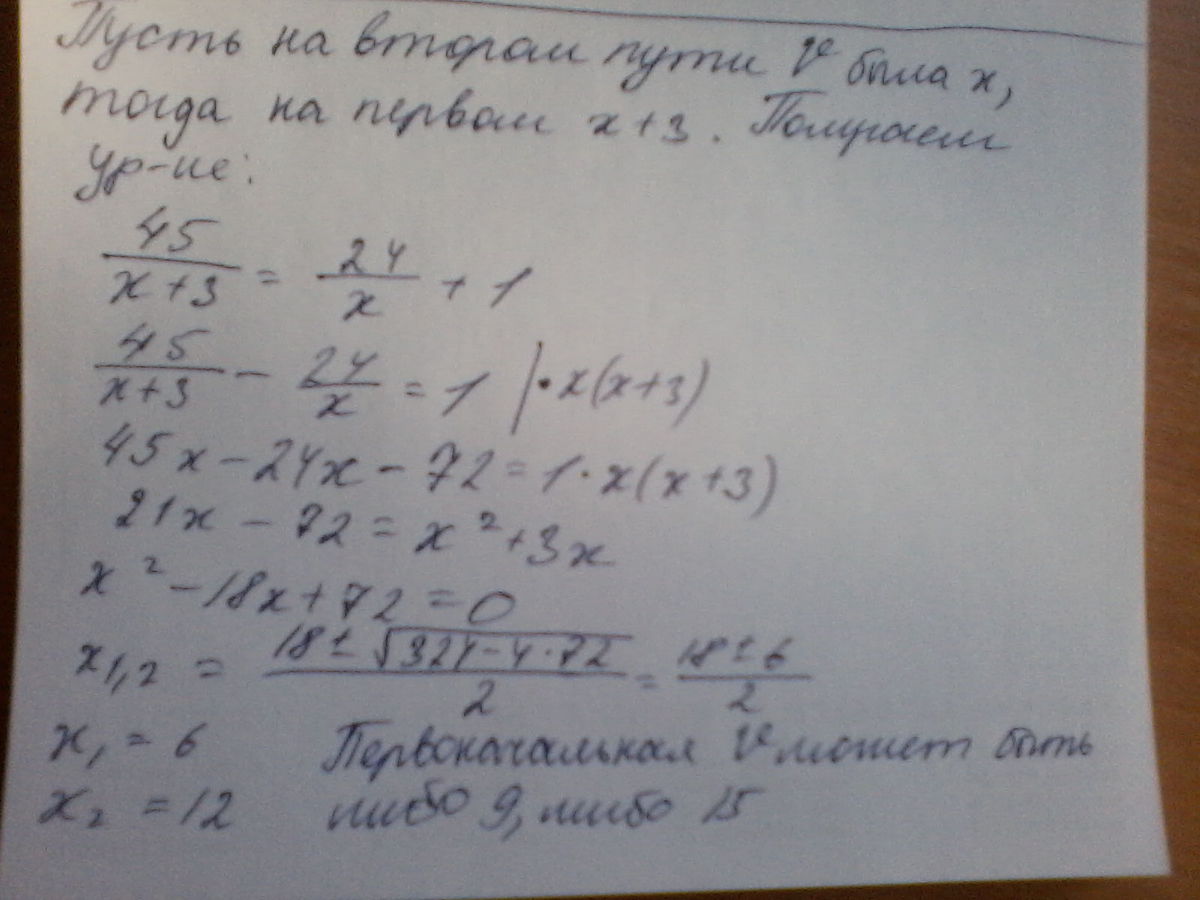 Пусть на втором пути V была x,
тогда на первом x+3. Получаем
ур-ие:
45/(x+3) = 24/x + 1
45/(x+3) − 24/x = 1 | · x(x+3)
45x − 24x − 72 = 1 · x(x+3)
21x − 72 = x² + 3x
x² − 18x + 72 = 0
x₁,₂ = (18 ± √(324 − 4·72))/2 = (18 ± 6)/2
x₁ = 6 Первоначальная V может быть
x₂ = 12 либо 9, либо 15